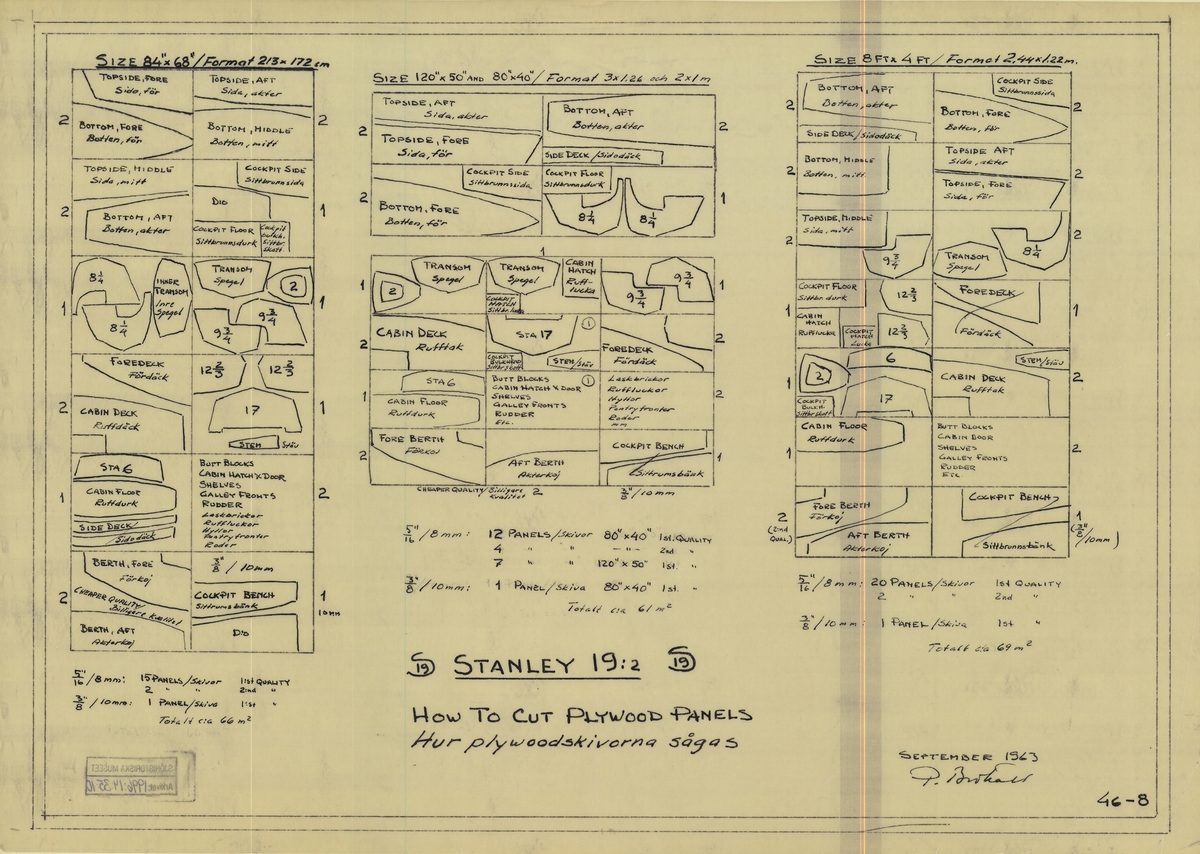 SIZE 84"x 68"/Format 213 x 172 cm
TOPSIDE, FORE
Sida, för
TOPSIDE, AFT
Sida, akter
2
BOTTOM, FORE
Botten, för
BOTTOM, MIDDLE
Botten, mitt
2
TOPSIDE, MIDDLE
Sida, mitt
COCKPIT SIDE
Sittbrunnssida
2
BOTTOM, AFT
Botten, akter
D:o
1
COCKPIT FLOOR
Sittbrunnsdurk
COCKPIT
BULKH.
Sittbr.
Skott
1
8 1/4
8 1/4
INNER
TRANSOM
Inre
Spegel
TRANSOM
Spegel
2
9 3/4
9 3/4
1
FOREDECK
Fördäck
12 2/3
12 2/3
2
CABIN DECK
Ruffdäck
17
1
STEM
Stäv
STA 6
CABIN FLOOR
Ruffdurk
1
SIDE DECK/
Sidodäck
BUTT BLOCKS
CABIN HATCH x DOOR
SHELVES
GALLEY FRONTS
RUDDER
Laskbrickor
Ruffluckor
Hyllor
Pantryfronter
Roder
2
BERTH, FORE
Förkoj
3/8" / 10mm
2
CHEAPER QUALITY/
Billigare kvalitet
COCKPIT BENCH
Sittrumsbänk
1
10mm
BERTH, AFT
Akterkoj
D:o
5/16" / 8mm: 15 PANELS/Skivor 1:st QUALITY
2 " " 2:nd "
3/8" / 10mm: 1 PANEL/Skiva 1:st "
Totalt c:a 66 m²
SIZE 120"x 50" AND 80"x 40"/ Format 3x1.26 och 2x1m
TOPSIDE, AFT
Sida, akter
BOTTOM, AFT
Botten, akter
2
TOPSIDE, FORE
Sida, för
2
SIDE DECK/Sidodäck
COCKPIT SIDE
Sittbrunnssida
COCKPIT FLOOR
Sittbrunnsdurk
2
BOTTOM, FORE
Botten, för
8 1/4
8 1/4
1
1
1
2
TRANSOM
Spegel
TRANSOM
Spegel
COCKPIT
HATCH
CABIN
HATCH
Ruff-
lucka
9 3/4
9 3/4
1
2
CABIN DECK
Rufftak
STA 17
1
COCKPIT
BULKHEAD
STEM/Stäv
FOREDECK
Fördäck
2
1
STA 6
CABIN FLOOR
Ruffdurk
BUTT BLOCKS
CABIN HATCH x DOOR
SHELVES
GALLEY FRONTS
RUDDER
ETC.
1
Laskbrickor
Ruffluckor
Hyllor
Pantryfronter
Roder
mm
2
2
FORE BERTH
Förkoj
AFT BERTH
Akterkoj
COCKPIT BENCH
Sittrumsbänk
1
CHEAPER QUALITY/Billigare
kvalitet
2
3/8" / 10mm
5/16" / 8mm: 12 PANELS/Skivor 80"x 40" 1st. QUALITY
4 " " —"— 2nd "
7 " " 120"x 50" 1st. "
3/8" / 10mm: 1 PANEL/Skiva 80"x 40" 1st. "
Totalt c:a 61 m²
SIZE 8FTx 4FT/ Format 2,44x1.22m.
2
BOTTOM, AFT
Botten, akter
SIDE DECK/Sidodäck
COCKPIT SIDE
Sittbrunnssida
BOTTOM, FORE
Botten, för
2
2
BOTTOM, MIDDLE
Botten, mitt
TOPSIDE AFT
Sida, akter
TOPSIDE, FORE
Sida, för
2
2
TOPSIDE, MIDDLE
Sida, mitt
9 3/4
TRANSOM
Spegel
8 1/4
1
1
COCKPIT FLOOR
Sittbr. durk
12 2/3
FOREDECK
Fördäck
1
CABIN
HATCH
Rufflucka
COCKPIT
HATCH
Lucka
12 2/3
1
2
6
17
COCKPIT
BULKH.
Sittbr. skott
STEM/Stäv
CABIN DECK
Rufftak
2
1
CABIN FLOOR
Ruffdurk
BUTT BLOCKS
CABIN DOOR
SHELVES
GALLEY FRONTS
RUDDER
ETC
2
2
(2:nd
QUAL.)
FORE BERTH
Förkoj
AFT BERTH
Akterkoj
COCKPIT BENCH
Sittbrunnsbänk
1
(3/8"
/10mm)
5/16" / 8mm: 20 PANELS/Skivor 1st QUALITY
2 " " 2nd "
3/8" / 10mm: 1 PANEL/Skiva 1st "
Totalt c:a 69 m²
19 STANLEY 19:2 19
HOW TO CUT PLYWOOD PANELS
Hur plywoodskivorna sågas
SEPTEMBER 1963
46-8
SJÖHISTORISKA MUSEET